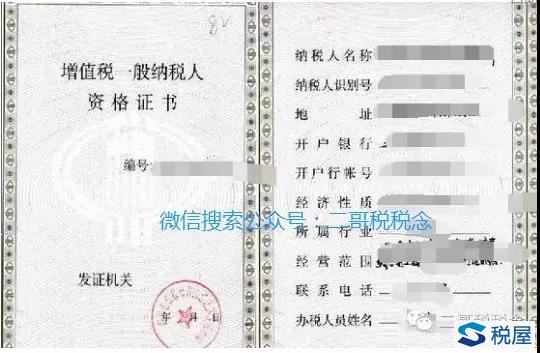 增值税一般纳税人
资格证书
编号
发证机关
年 月 日
纳税人名称
纳税人识别号
地 址
开户银行
开户行帐号
经济性质
所属行业
经营范围
联系电话
办税人员姓名
微信搜索公众号：二哥税税念
二哥税税念
税屋